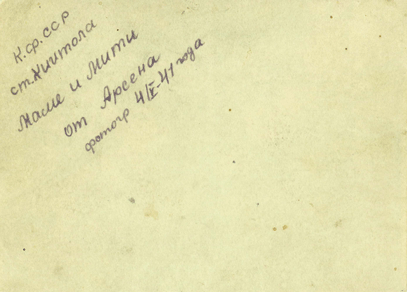 К.ф.ССР
ст. Хиитола
Маме и Мити
от Арсена
фотогр 4/V-41 года